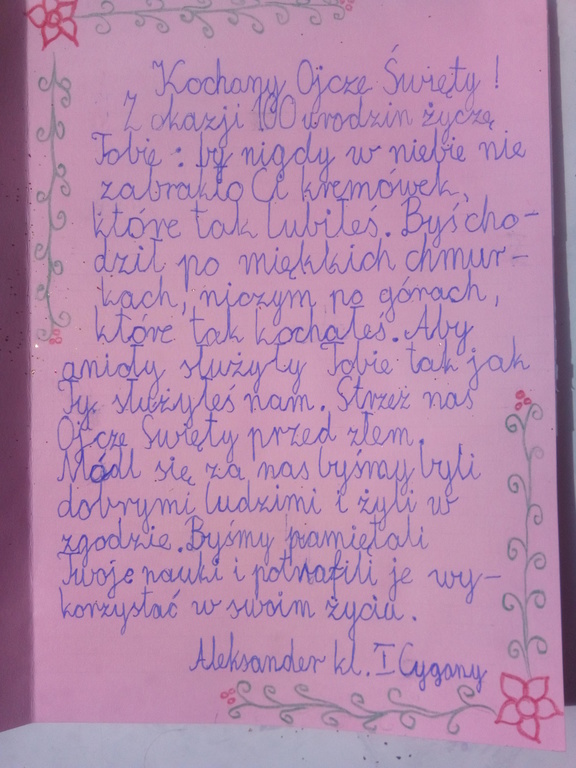 Kochany Ojcze Święty!
Z okazji 100 urodzin życzę
Tobie: by nigdy w niebie nie
zabrakło Ci kremówek,
które tak lubiłeś. Byś cho-
dził po miękkich chmur-
kach, niczym po górach,
które tak kochałeś. Aby
anioły służyły Tobie tak jak
Ty służyłeś nam. Strzeż nas
Ojcze Święty przed złem.
Módl się za nas byśmy byli
dobrymi ludzimi i żyli w
zgodzie. Byśmy pamiętali
Twoje nauki i potrafili je wy-
korzystać w swoim życiu.
Aleksander kl. I Cygany